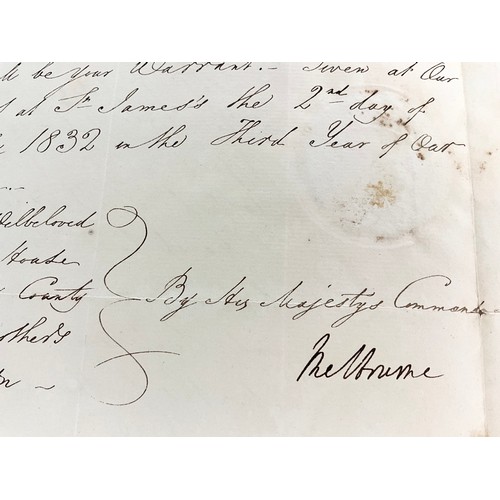 be your Warrant. – Given at Our
at St. James's the 2nd day of
1832 in the Third Year of Our
Welbeloved
House
County
By His Majesty's Command
others
Melbourne